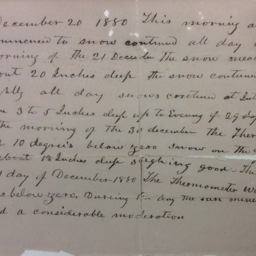 December 20 1880 This morning a
mmenced to snow continued all day
orning of the 21 December the snow mea
out 20 Inches deep the snow continue
ally all day snows continue at Int
3 to 5 Inches deep up to Evening of 29
the morning of the 30 december the Ther
10 degree's below zero snow on the
about 18 Inches deep sleighing good. The
day of December 1880 The Thermometer w
s below zero. During the day the sun
d a considerable moderation